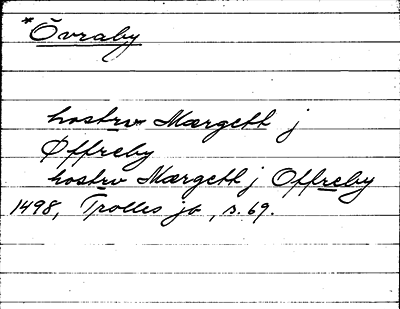 *Övraby
hostrv Mærgett j
Øffreby
hostrv Mærgett j Offreby
1498, Trolles jo, s. 69.